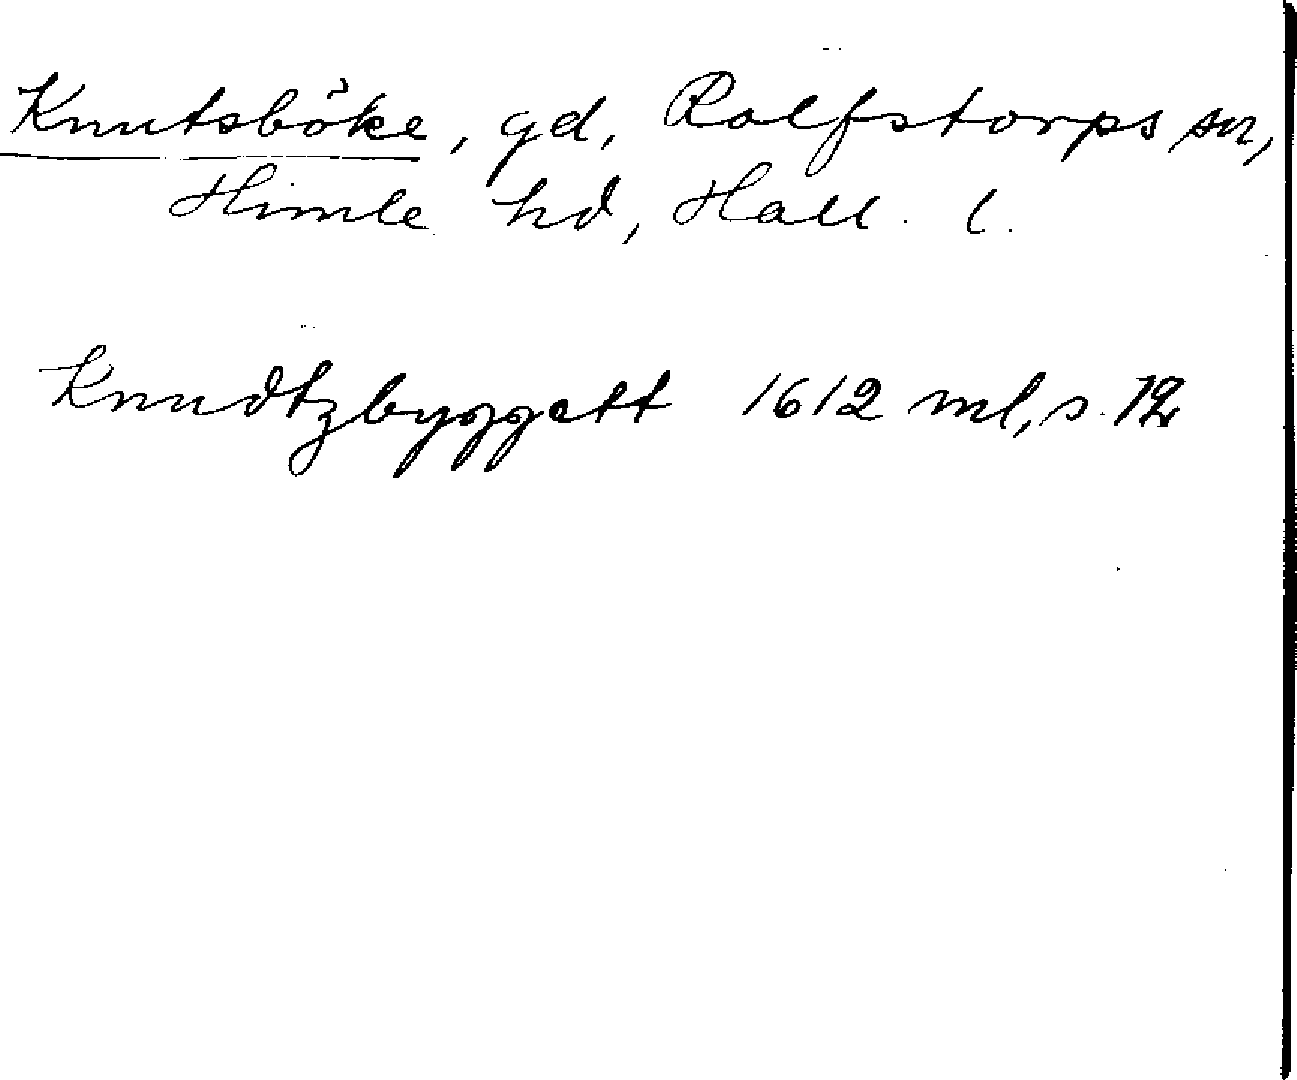 Knutsböke, gd, Rolfstorps sn,
Himle hd, Hall. l.
Knudtzbyggett 1612 ml, s. 12